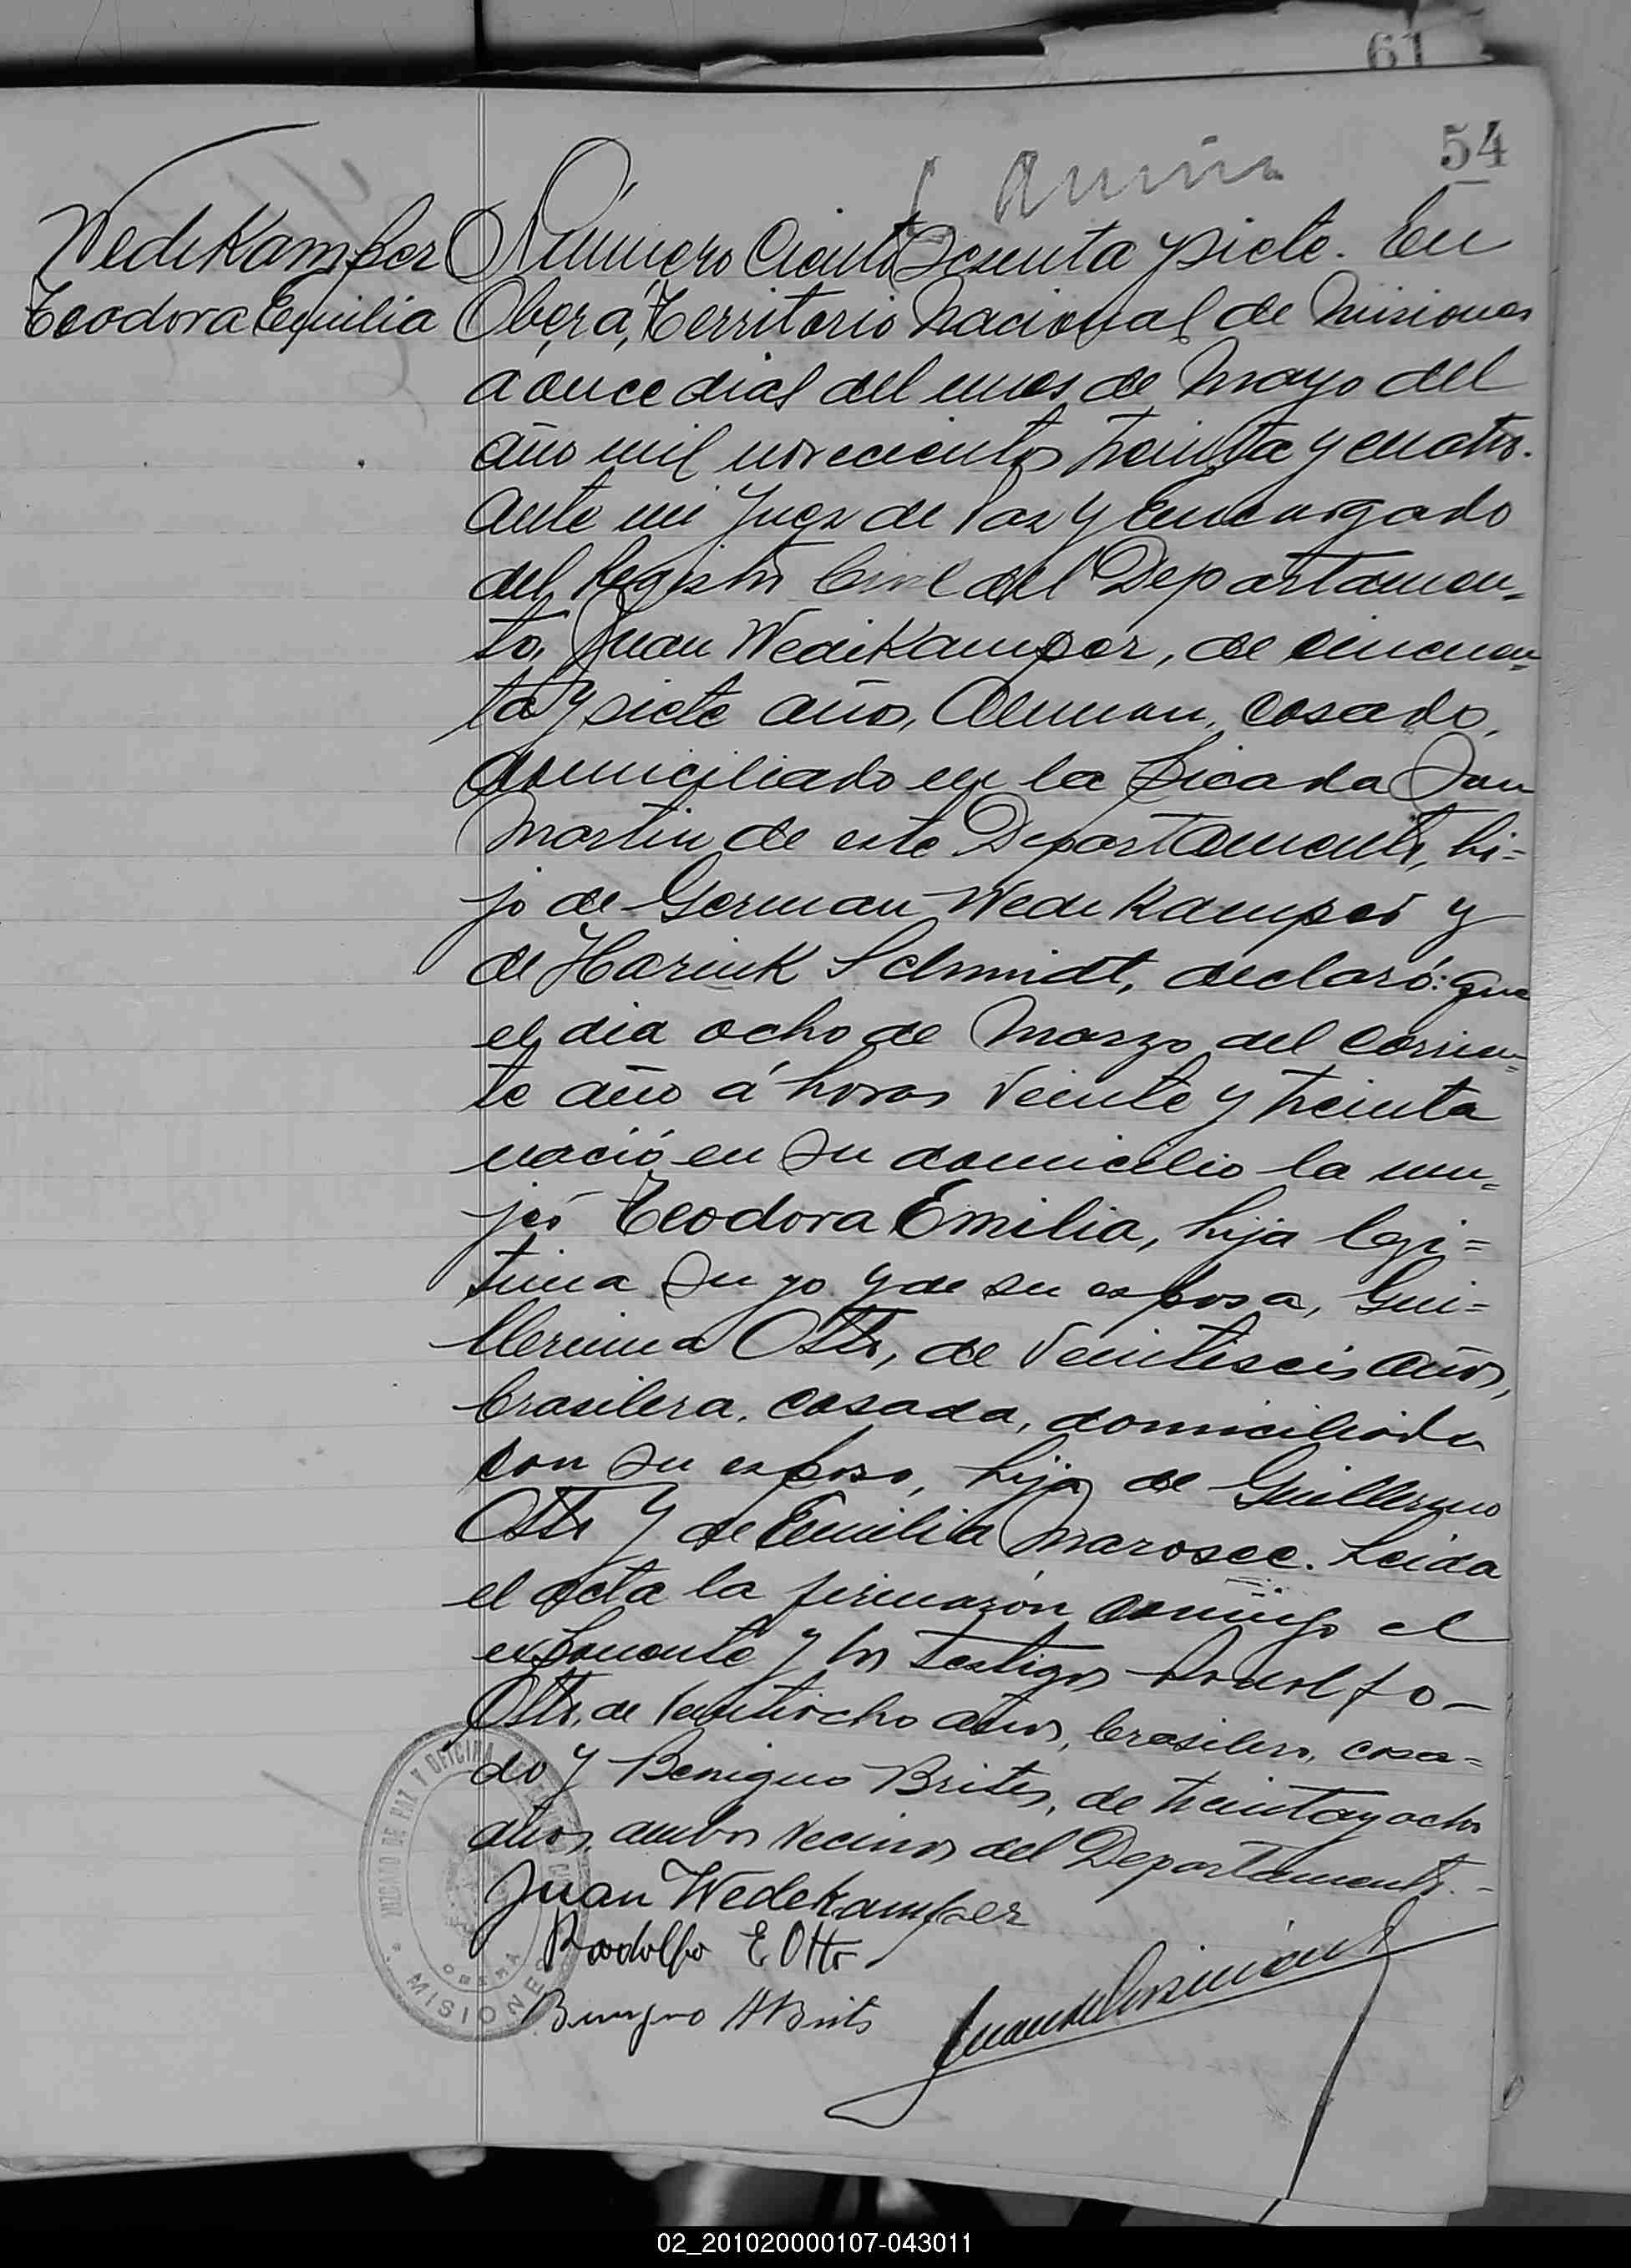 61
54
Wedekamper
Teodora Emilia
Número Ciento Sesenta y siete. En
Oberá, Territorio Nacional de Misiones
a once dias del mes de Mayo del
año mil novecientos treinta y cuatro.
ante mi Juez de Paz y Encargado
del Registro Civil del Departamen-
to, Juan Wedekamper, de cincuen-
ta y siete años, Aleman, casado,
domiciliado en la Picada San
Martin de este Departamento, hi=
jo de German Wedekamper y
de Harink Schmidt, declaró: que
el dia ocho de Marzo del corrien-
te año á horas veinte y treinta
nació en su domicilio la mu-
jer Teodora Emilia, hija legi=
tima suya y de su esposa, Gui=
llermina Otto, de veintiseis años,
brasilera, casada, domiciliada
con su esposo, hija de Guillermo
Otto y de Emilia Marosec. Leida
el acta la firmarón conmigo el
exponente y los testigos Rodolfo-
Otto, de veintiocho años, brasilero, casa=
do y Benigno Brites, de treinta y ocho
años, ambos vecinos del Departamento.-
Juan Wedekamper
Rodolfo E Otto
Benigno A Brits
JUZGADO DE PAZ Y OFICINA
OBERA
MISIONES
02_201020000107-043011